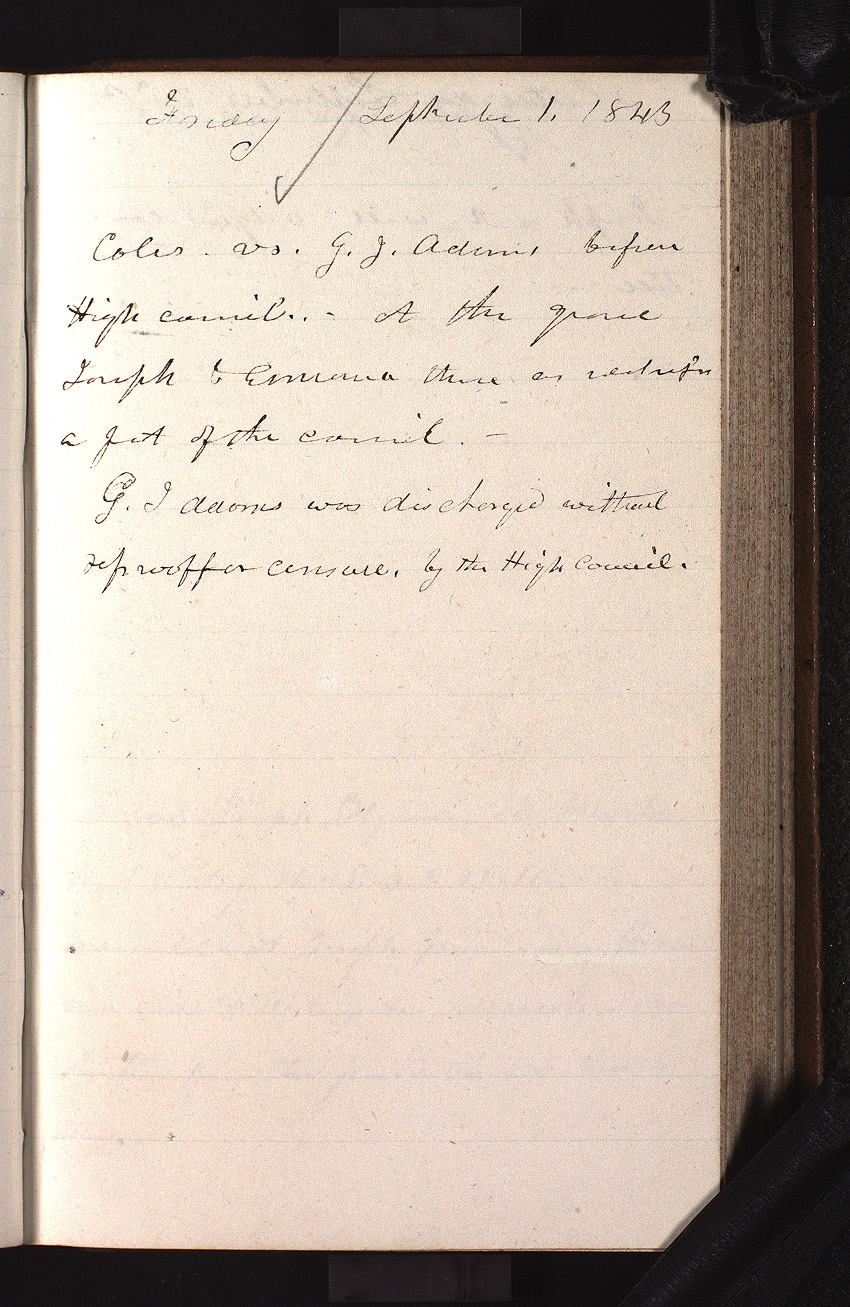 Friday September 1. 1843
Coles. vs. G. J. Adams before
High council.. - At the grove
Joseph & Emma there as witness
a part of the council. -
G. J Adams was discharged without
reproof or censure. by the High Council.